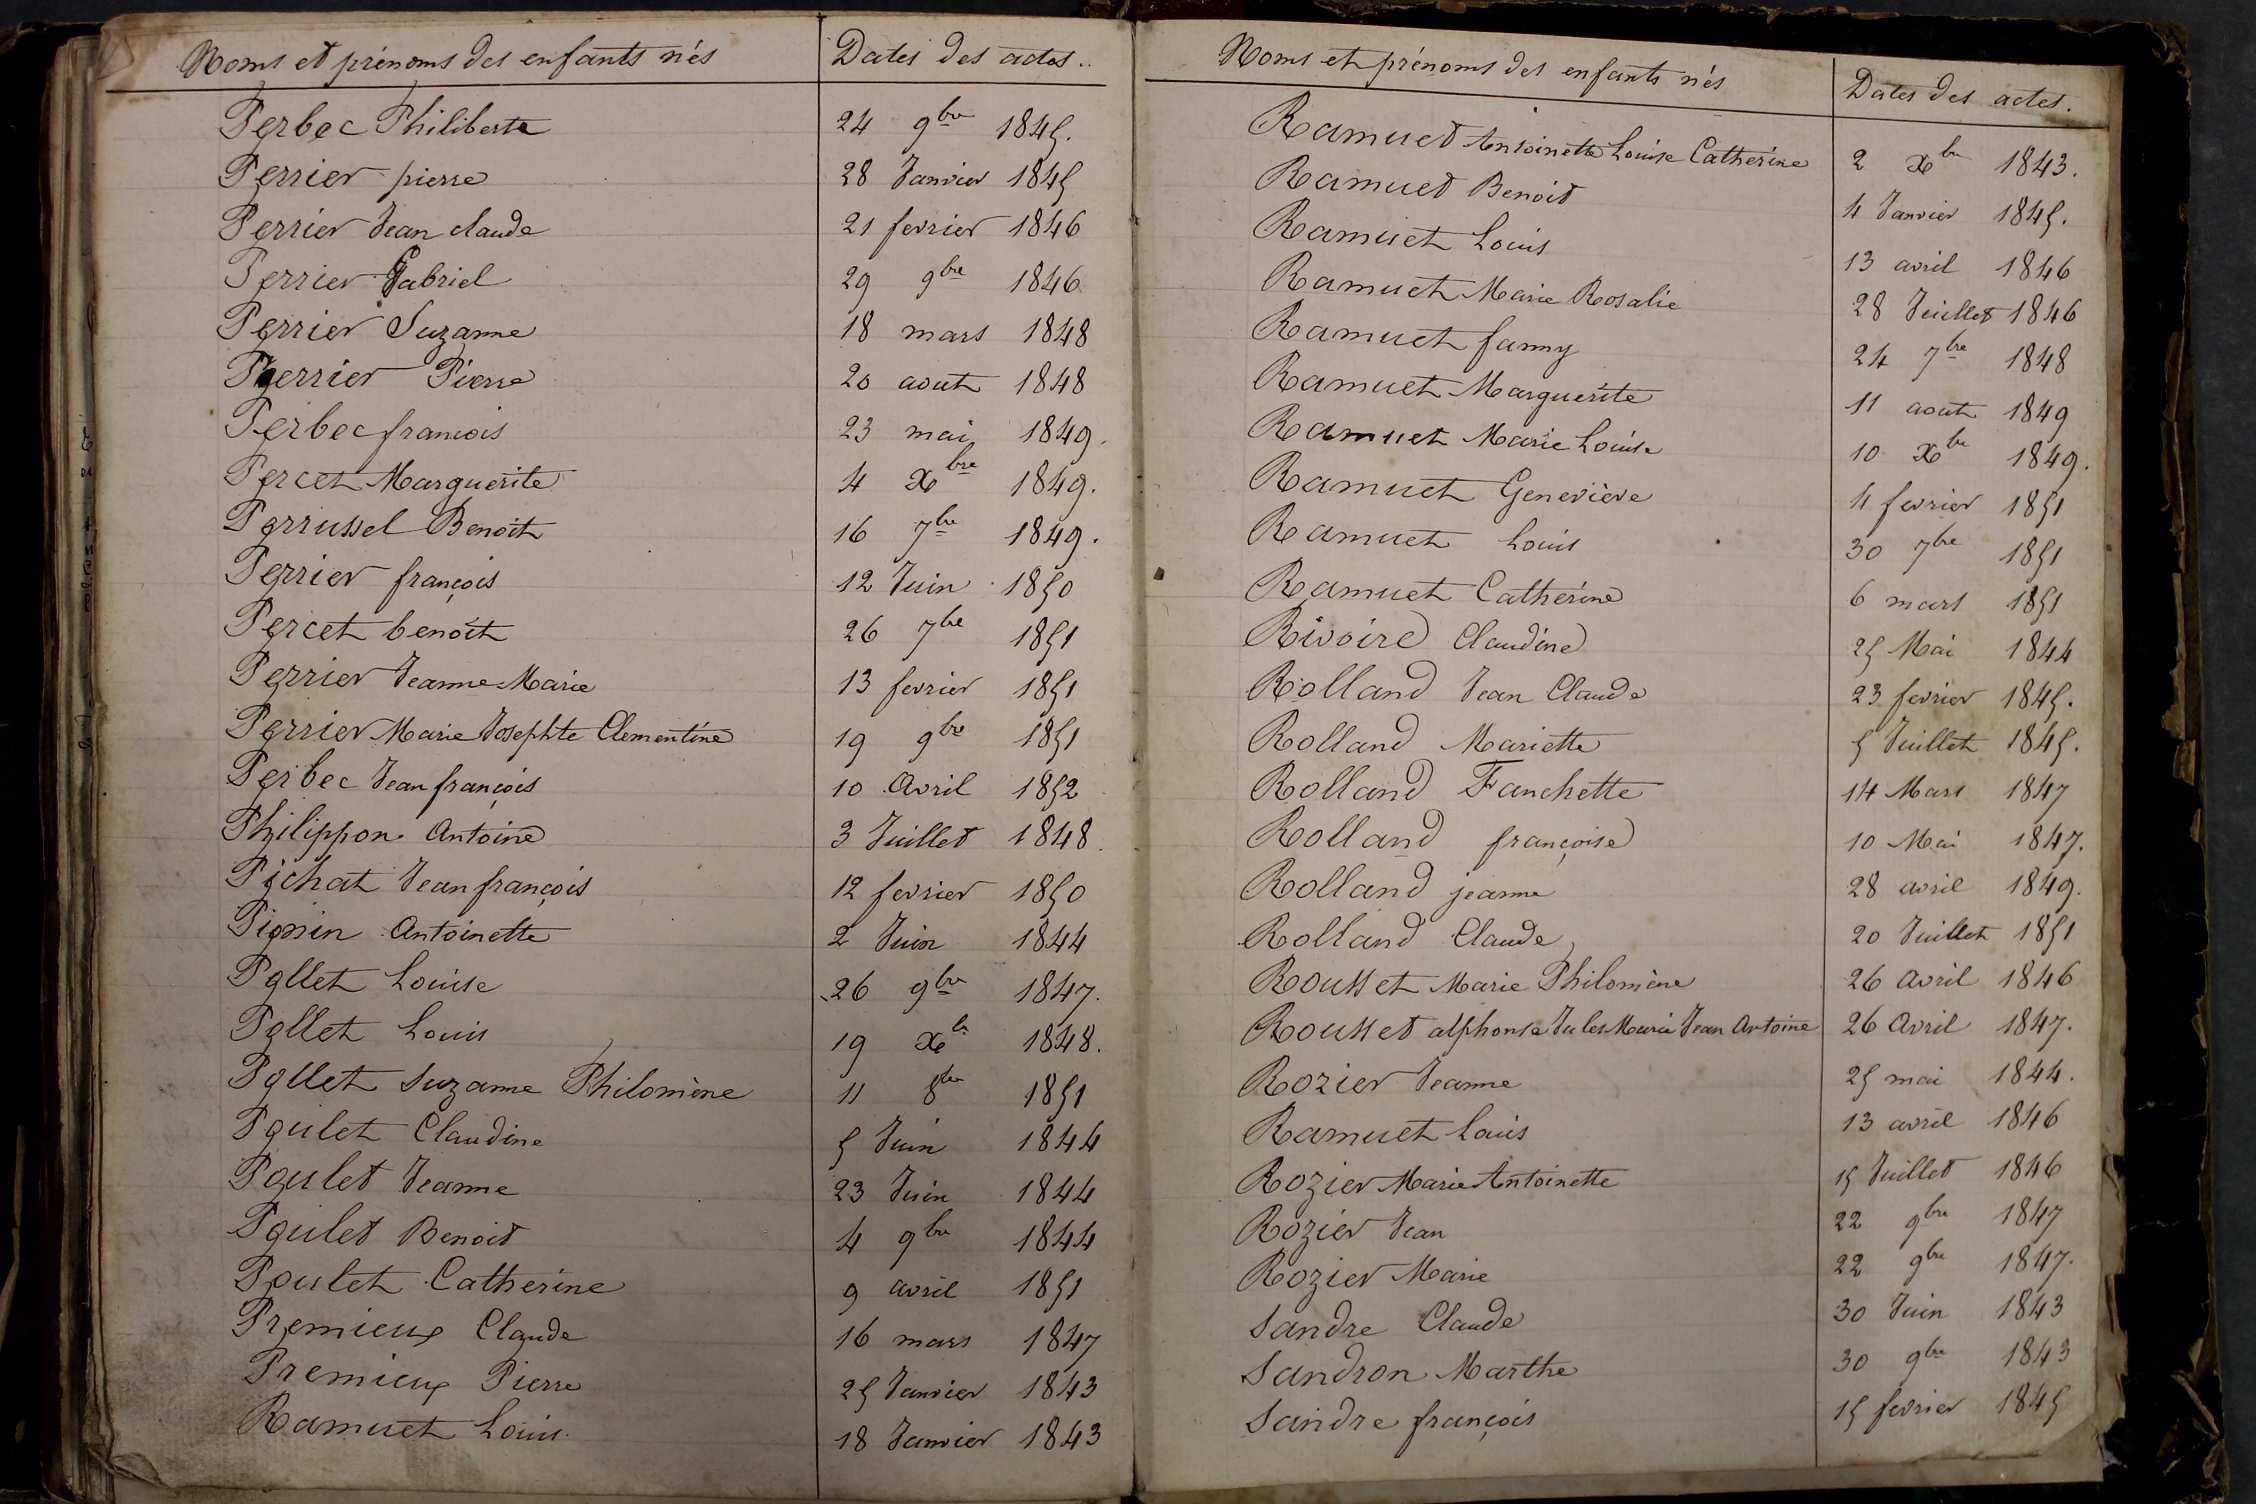 Noms et prénoms des enfants nés Dates des actes..
Perbec Philiberte 24 9bre 1845.
Perrier pierre 28 Janvier 1845
Perrier Jean claude 21 fevrier 1846
Perrier Gabriel 29 9bre 1846
Perrier Suzanne 18 mars 1848
Perrier Pierre 20 aout 1848
Perbec francois 23 mai 1849.
Percet Marguerite 4 Xbre 1849.
Perrussel Benoit 16 7bre 1849.
Perrier françois 12 Juin 1850
Percet benoit 26 7bre 1851
Perrier Jeanne Marie 13 fevrier 1851
Perrier Marie Josephte Clementine 19 9bre 1851
Perbec Jean françois 10 Avril 1852
Philippon Antoine 3 Juillet 1848.
Pichat Jean françois 12 fevrier 1850
Pignin Antoinette 2 Juin 1844
Pollet Louise 26 9bre 1847.
Pollet Louis 19 Xb 1848.
Pollet Suzanne Philomène 11 8bre 1851
Poulet Claudine 5 Juin 1844
Poulet Jeanne 23 Juin 1844
Poulet Benoit 4 9bre 1844
Poulet Catherine 9 avril 1851
Premieux Claude 16 mars 1847
Premieux Pierre 25 Janvier 1843
Ramuet Louis 18 Janvier 1843
Noms et prénoms des enfants nés Dates des actes.
Ramuet Antoinette Louise Catherine 2 Xbre 1843.
Ramuet Benoit 4 Janvier 1845.
Ramuet Louis 13 avril 1846
Ramuet Marie Rosalie 28 Juillet 1846
Ramuet fanny 24 7bre 1848
Ramuet Marguerite 11 aout 1849
Ramuet Marie Louise 10 Xbre 1849.
Ramuet Geneviève 4 fevrier 1851
Ramuet Louis 30 7bre 1851
Ramuet Catherine 6 mars 1851
Rivoire Claudine 25 Mai 1844
Rolland Jean Claude 23 fevrier 1845.
Rolland Mariette 5 Juillet 1845.
Rolland Fanchette 14 Mars 1847
Rolland françoise 10 Mai 1847.
Rolland jeanne 28 avril 1849.
Rolland Claude 20 Juillet 1851
Rousset Marie Philomène 26 Avril 1846
Rousset alphonse Jules Marie Jean Antoine 26 Avril 1847.
Rozier Jeanne 25 mai 1844.
Ramuet Louis 13 avril 1846
Rozier Marie Antoinette 15 Juillet 1846
Rozier Jean 22 9bre 1847
Rozier Marie 22 9bre 1847.
Sandre Claude 30 Juin 1843
Sandron Marthe 30 9bre 1843
Sandre françois 15 fevrier 1845